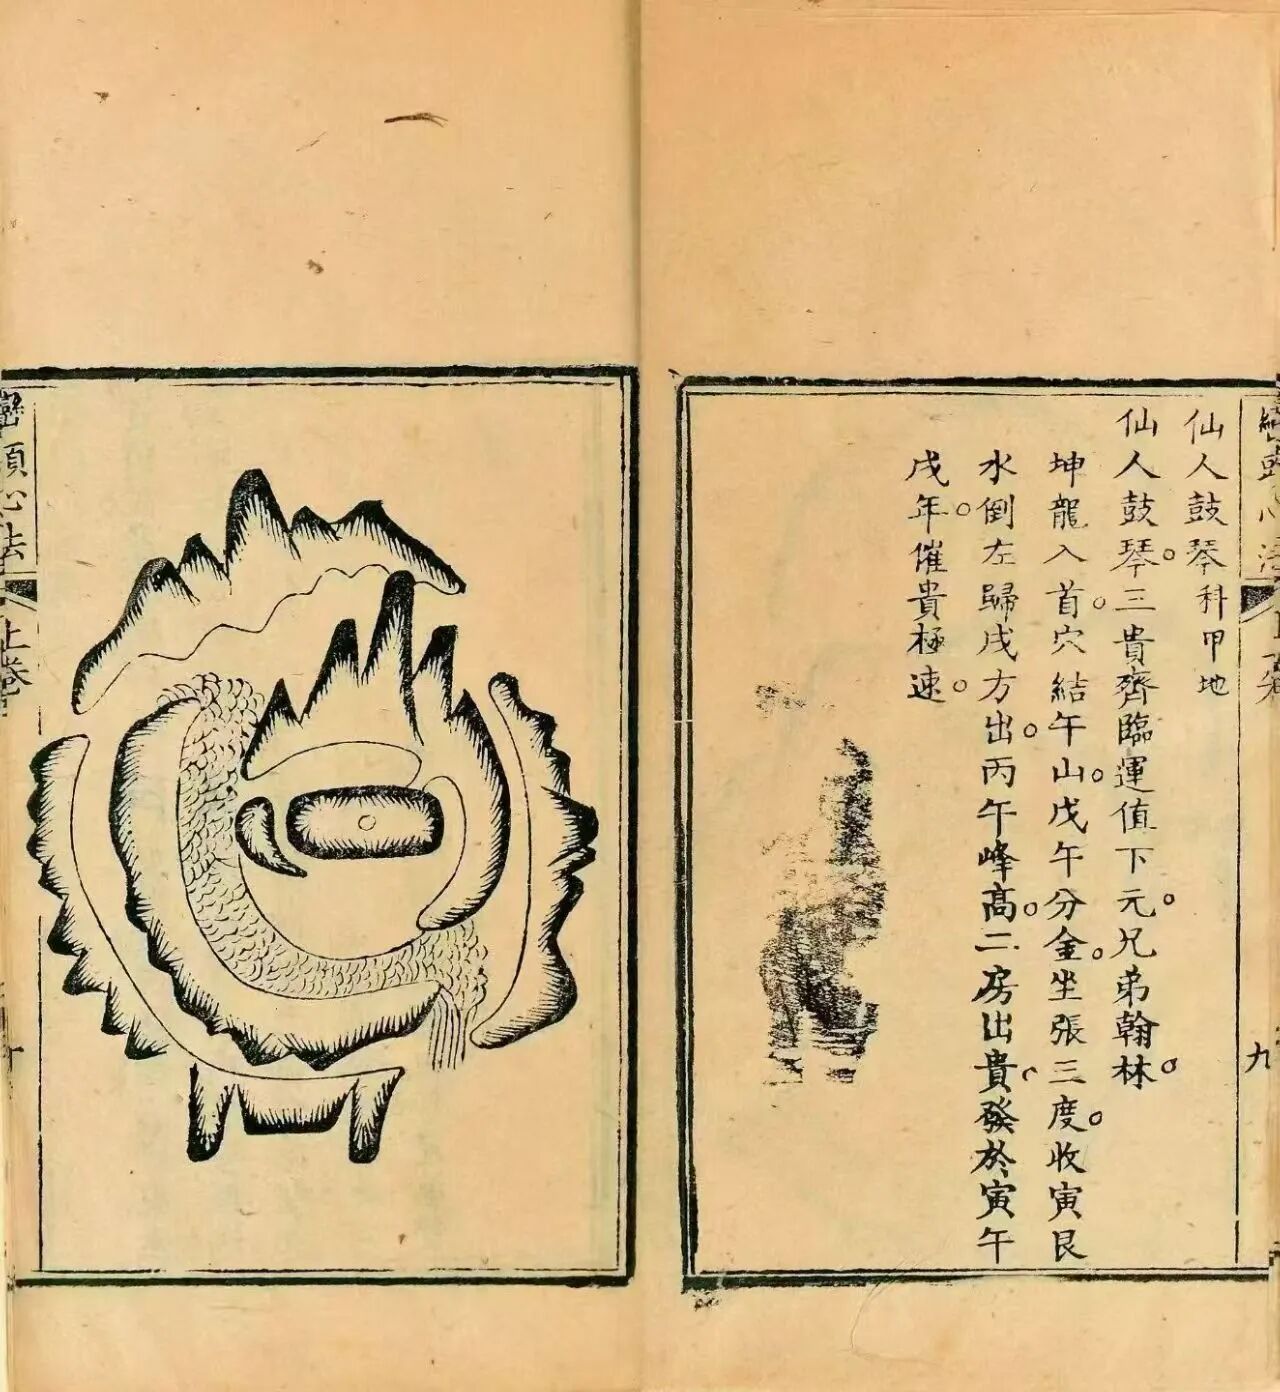 仙人鼓琴科甲地
仙人鼓琴。三貴齊臨運值下元。兄弟翰林。
坤龍入首。穴結午山。戊午分金。坐張三度。收寅艮
水倒左歸戌方出。丙午峰高。二房出貴。發於寅午
戌年。催貴極速。
九
巒頭心法
上卷